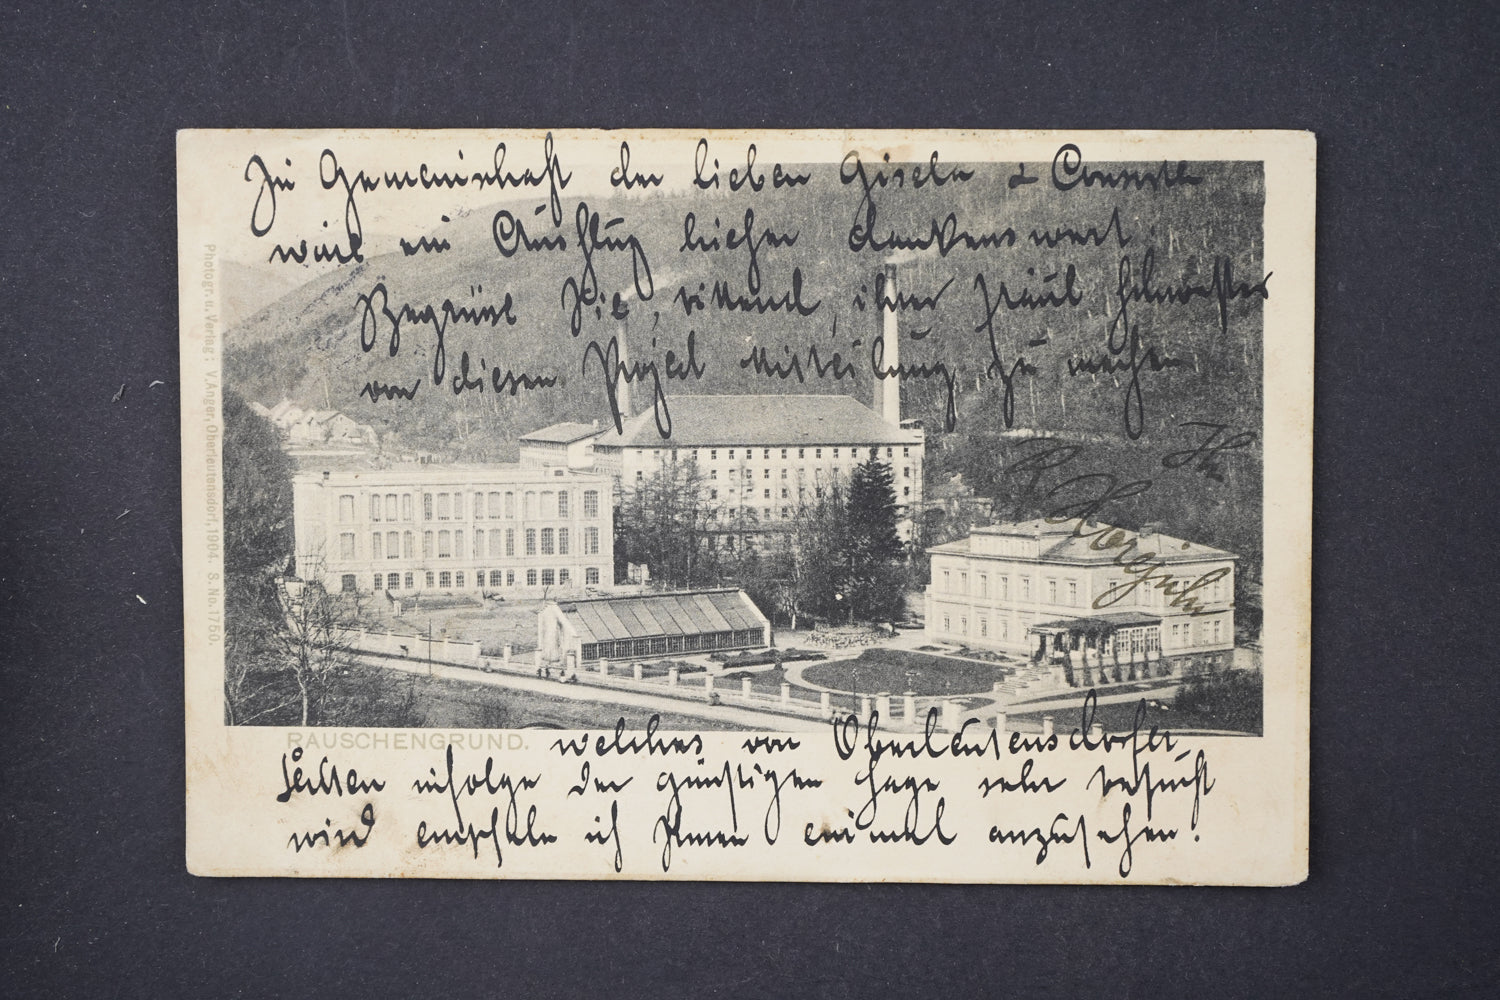 In Gemeinschaft der lieben Gisela &
wird ein Ausflug hieher dankenswert.
Begrüsst Sie, bittend, ihrer Schwester
von diesem Project Mitteilung zu machen
Ihr
R
RAUSCHENGRUND.
welches von Oberleutensdorfer
Seiten infolge der günstigen Lage sehr besucht
wird empfehle ich Ihnen einmal anzusehen.
Photogr. u. Verlag: V. Anger, Oberleutensdorf, 1904. S. No. 1760.